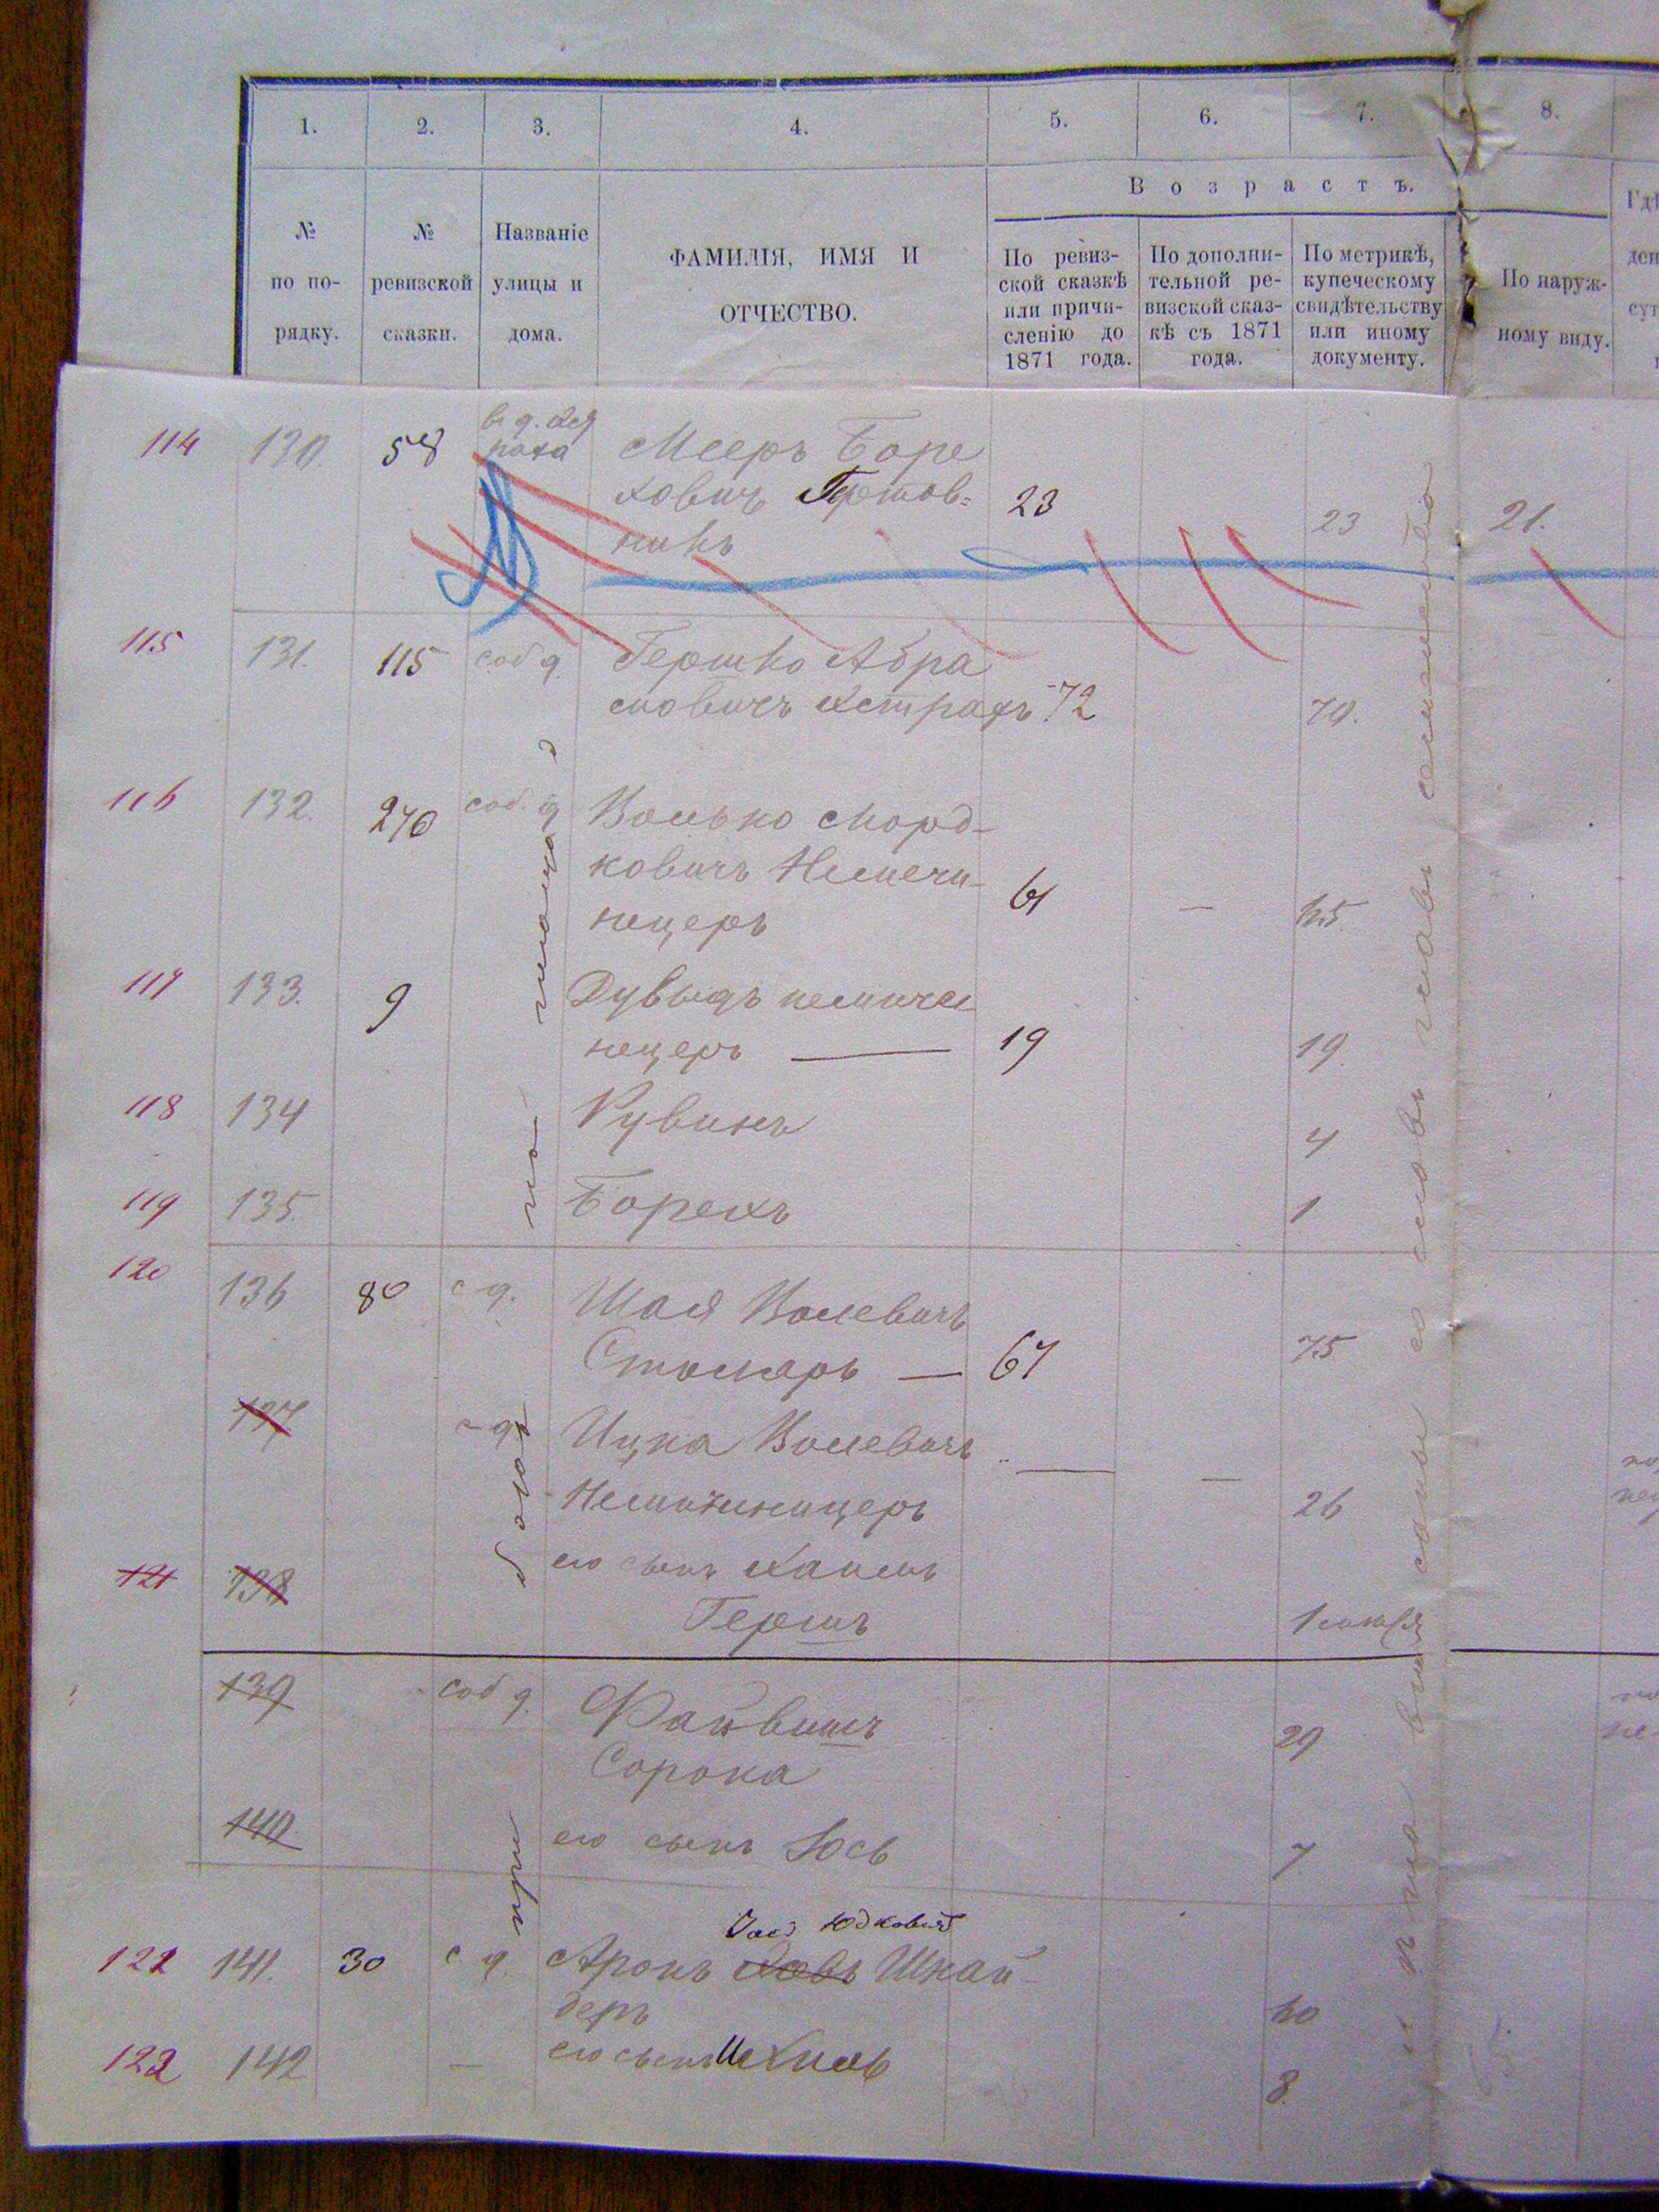 1. 2. 3. 4. 5. 6. 7. 8.
В о з р а с т ъ.
№
по по-
рядку.
№
ревизской
сказки.
Названіе
улицы и
дома.
ФАМИЛІЯ, ИМЯ И
ОТЧЕСТВО.
По ревиз-
ской сказкѣ
или причи-
сленію до
1871 года.
По дополни-
тельной ре-
визской сказ-
кѣ съ 1871
года.
По метрикѣ,
купеческому
свидѣтельству
или иному
документу.
По наруж-
ному виду.
114 130. 58 Мееръ Боре
ховичъ 23 23 21.
никъ
115 131. 115 соб д. Гершко Абра
мовичъ 72 70.
116 132. 270 соб. д Волько Морд-
ковичъ Немечи- 61 65.
нецеръ
117 133. 9 Дувыдъ немиче
нецеръ — 19 19.
118 134 Рувинъ 4
119 135. Борехъ 1
120 136 80 с д. Шая Волевичъ
Столяръ — 67 75
137 с д. Ицка Волевичъ
Немиченицеръ 26
121 138 его сынъ Хаимъ
Гершъ 1
139 соб д. Файвишъ 29
Сорока
140. его сынъ Юсь 7
Юдковичъ
122 141. 30 с д. Аронъ Шнай-
деръ 60
123 142 — его сынъ Ихиль 8.